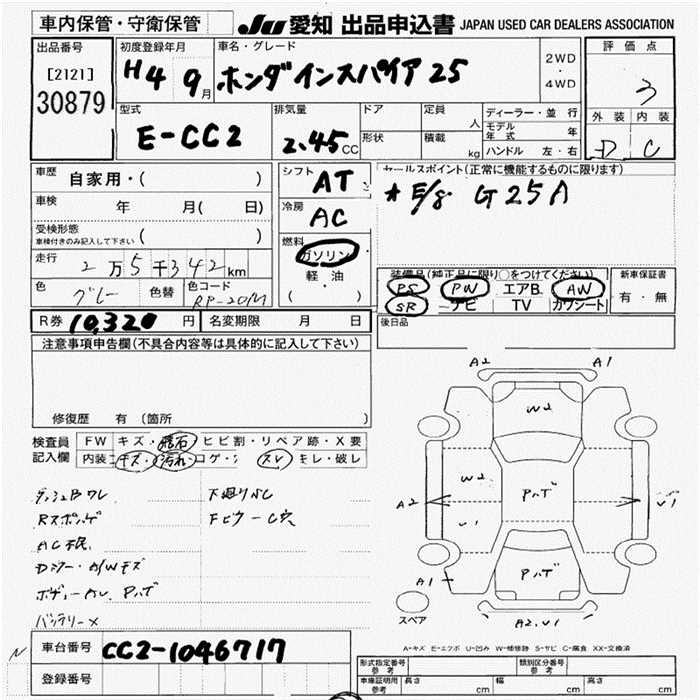 車内保管・守衛保管 JU 愛知 出品申込書 JAPAN USED CAR DEALERS ASSOCIATION
出品番号 初度登録年月 車名・グレード 評価点
[2121] H4 9月 ホンダインスパイア25 2WD・4WD 3
30879
型式 排気量 ドア 定員 人 ディーラー・並行 外装 内装
E-CC2 2.45CC 形状 積載 kg モデル年式 年 D C
ハンドル 左・右
車歴 自家用・( ) シフト AT セールスポイント(正常に機能するものに限ります)
車検 年 月( 日) 冷房 AC * E/g. G25A
受検形態 ( )
車検付きのみ記入して下さい
燃料 ガソリン 軽・油 ( ・ )
走行 2万5千342km 装備品(純正品に限り○をつけてください) 新車保証書
色 グレー 色替 色コード RP-20M PS PW エアB AW 有・無
SR ナビ TV カワシート
R券 10,320円 名変期限 月 日 後日品
注意事項申告欄(不具合内容等は具体的に記入して下さい)
修復歴 有 (箇所
検査員記入欄 FW キズ・飛石・ヒビ割・リペア跡・X要
内装 キズ・汚れ・コゲ・ スレ・キレ・破レ
A2 A1
W2
W2 Pハゲ
A2 U1 U1
Pハゲ
A1
A2.U1
スペア
ダッシュBワレ 下廻りサビ
Rスポンゲ
AC不良.
Dミラー・A/Wキズ
バッテリーX
A-キズ E-エクボ U-凹み W-補修跡 S-サビ C-腐食 XX-交換済
N 車台番号 CC2-1046717
登録番号
形式指定番号 参考 類別区分番号 参考
車庫証明用 参考 長さ cm 幅 cm 高さ cm